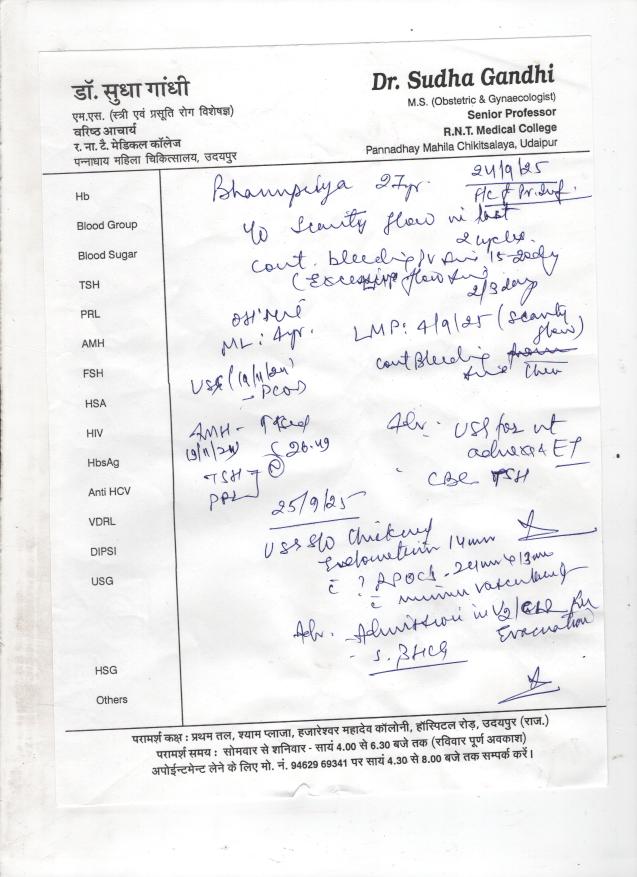 डॉ. सुधा गांधी
एम.एस. (स्त्री एवं प्रसूति रोग विशेषज्ञ)
वरिष्ठ आचार्य
र. ना. टै. मेडिकल कॉलेज
पन्नाधाय महिला चिकित्सालय, उदयपुर
Dr. Sudha Gandhi
M.S. (Obstetric & Gynaecologist)
Senior Professor
R.N.T. Medical College
Pannadhay Mahila Chikitsalaya, Udaipur
Hb
Blood Group
Blood Sugar
TSH
PRL
AMH
FSH
HSA
HIV
HbsAg
Anti HCV
VDRL
DIPSI
USG
HSG
Others
27yr. 24/9/25
Scanty flow in last
2 cycles.
cont. bleeding P/V 15-20day
(Excessive flow
2/3 days
ML: 4yr.
LMP: 4/9/25 (Scanty
flow)
cont Bleeding
since then
USG (19/11/24)
- PCOD
AMH -
19/11/24 26.49
TSH
PRL
Adv. USG for ut
adnexa & ET
CBC TSH
25/9/25
USG S/O Thickened
Endometrium 14mm
c̄ ? RPOCs - 24mm x 13mm
c̄ minimum vascularity
Adv. Admission in
Evacuation
- S. BHCG
परामर्श कक्ष : प्रथम तल, श्याम प्लाजा, हजारेश्वर महादेव कॉलोनी, हॉस्पिटल रोड़, उदयपुर (राज.)
परामर्श समय : सोमवार से शनिवार - सायं 4.00 से 6.30 बजे तक (रविवार पूर्ण अवकाश)
अपोईन्टमेन्ट लेने के लिए मो. नं. 94629 69341 पर सायं 4.30 से 8.00 बजे तक सम्पर्क करें।